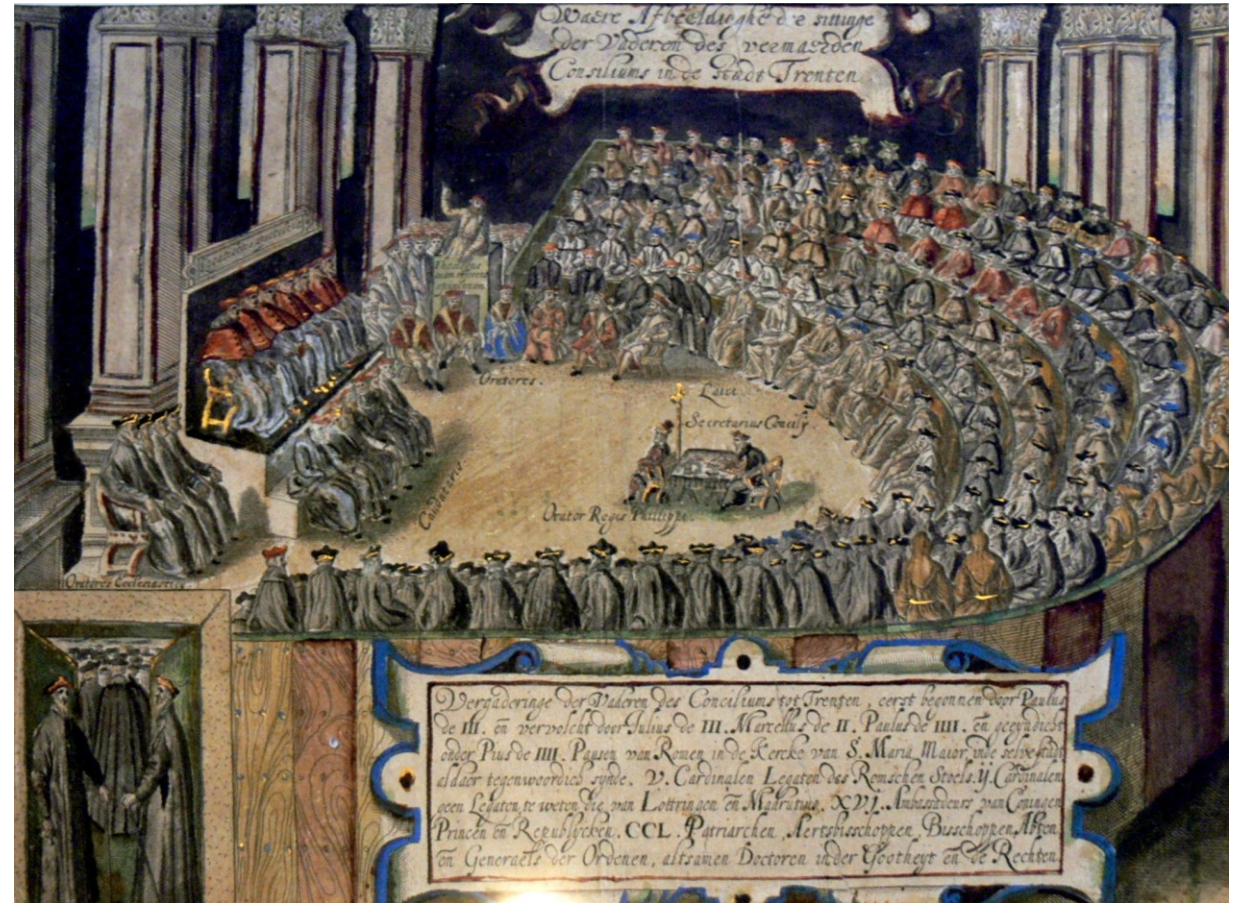 Waere Afbeeldinghe die sittinge
der Vaderen des vermaerden
Consiliums in de stadt Trenten
Oratores.
Laici
Secretarius Concilÿ.
Orator Regis Phillippi.
Oratores Ecclesiastici
Vergaderinge der Vaderen des Conciliums tot Trenten, eerst begonnen door Paulus
de III. en̄ vervolcht door Julius de III. Marcellus de II. Paulus de IIII. en̄ geeyndicht
onder Pius de IIII. Pausen van Romen in de Kercke van S. Maria Maior, inde selve stadt
aldaer tegenwoordich synde. V. Cardinalen Legaten des Romschen Stoels. ij. Cardinalen
geen Legaten, te weten die van Lottringen en̄ Madrutius. XVJ. Ambassadeurs van Coningen
Princen en̄ Republycken. CCL. Patriarchen, Aertsbisschoppen, Bisschoppen, Abten,
en̄ Generaels der Ordenen, altsamen Doctoren inder Gootheyt en̄ de Rechten